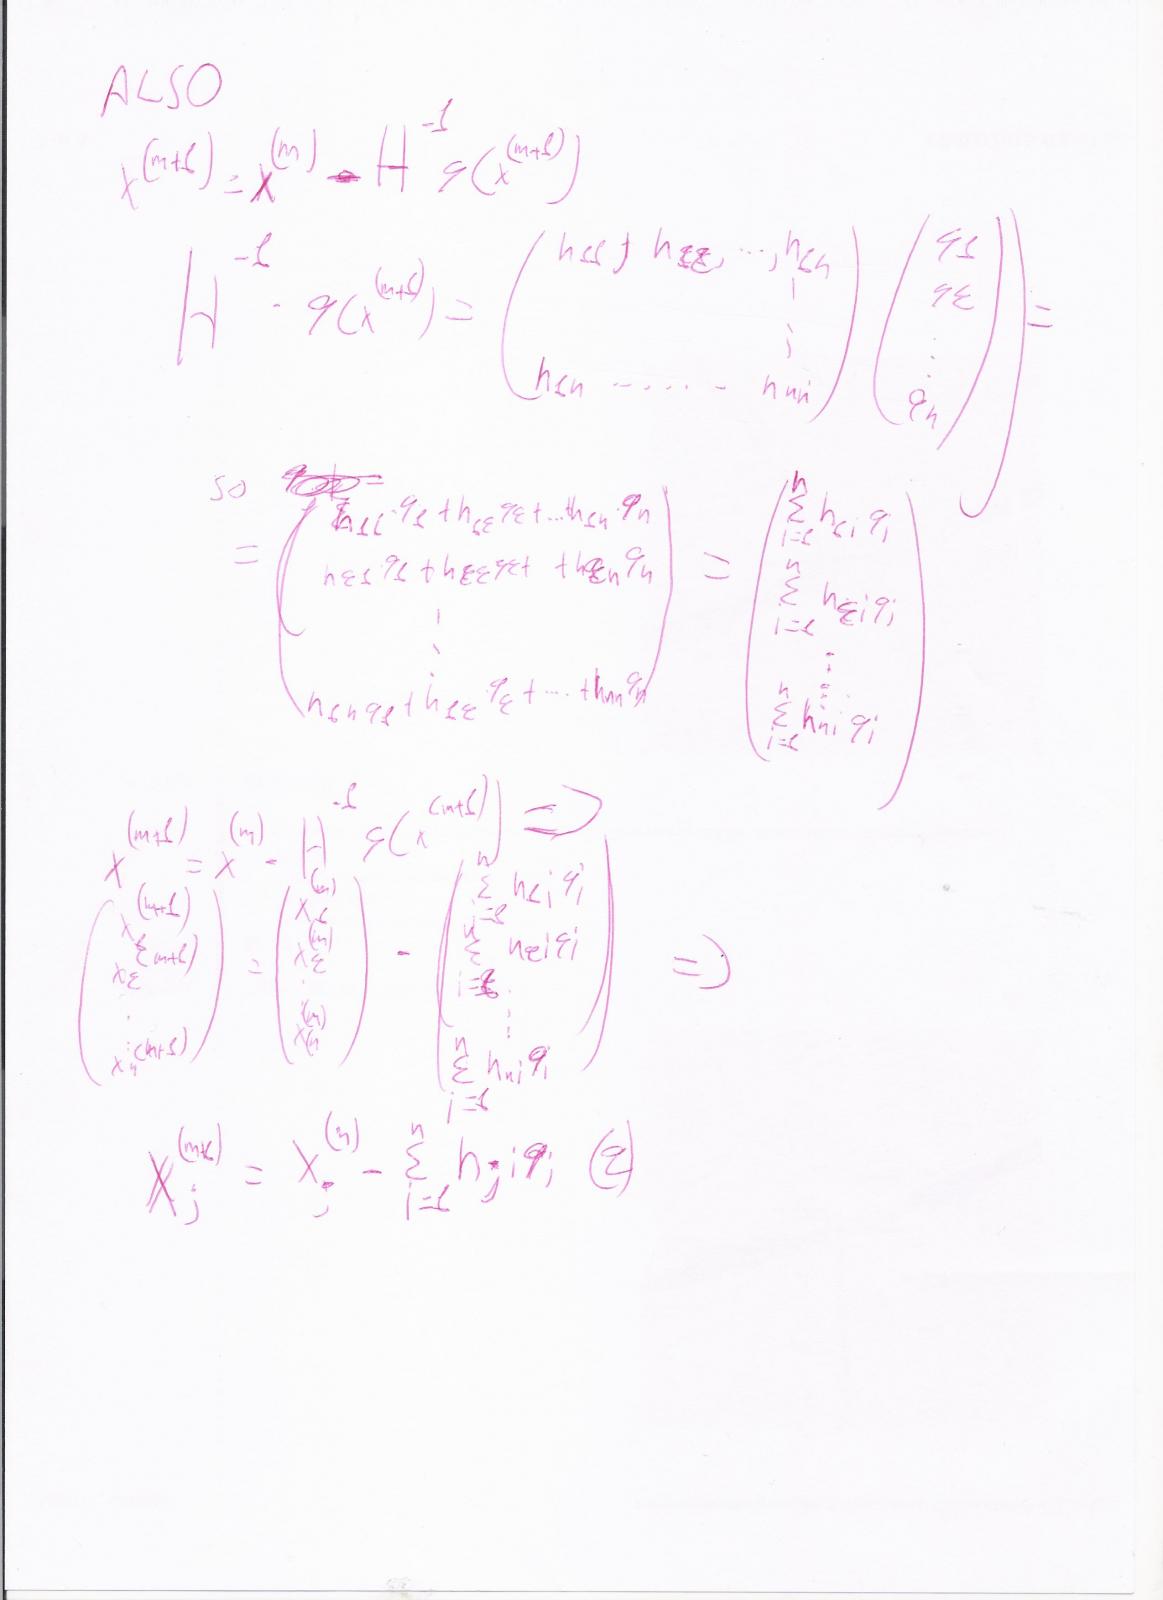 ALSO
x^(m+1) = x^(m) - H^-1 g(x^(m+1))
H^-1 · g(x^(m+1)) = ( h11, h12, ..., h1n ⋮ h1n ...... hnn ) ( g1 g2 ⋮ gn ) ) =
so
= ( h11·g1 + h12 g2 + ... + h1n·gn = ( Σ_{i=1}^{n} h1i gi
h21·g1 + h22 g2 + + h2n gn Σ_{i=1}^{n} h2i gi
⋮ ⋮
h1n g1 + h12·g2 + .... + hnn gn ) Σ_{i=1}^{n} hni gi )
x^(m+1) = x^(m) - H^-1 g(x^(m+1)) =>
( x1^(m+1) x2^(m+1) ⋮ xn^(m+1) ) = ( x1^(m) x2^(m) ⋮ xn^(m) ) - ( Σ_{i=1}^{n} h1i gi Σ_{i=1}^{n} h2i gi ⋮ Σ_{i=1}^{n} hni gi ) =>
xj^(m+1) = xj^(m) - Σ_{i=1}^{n} hji gi (2)